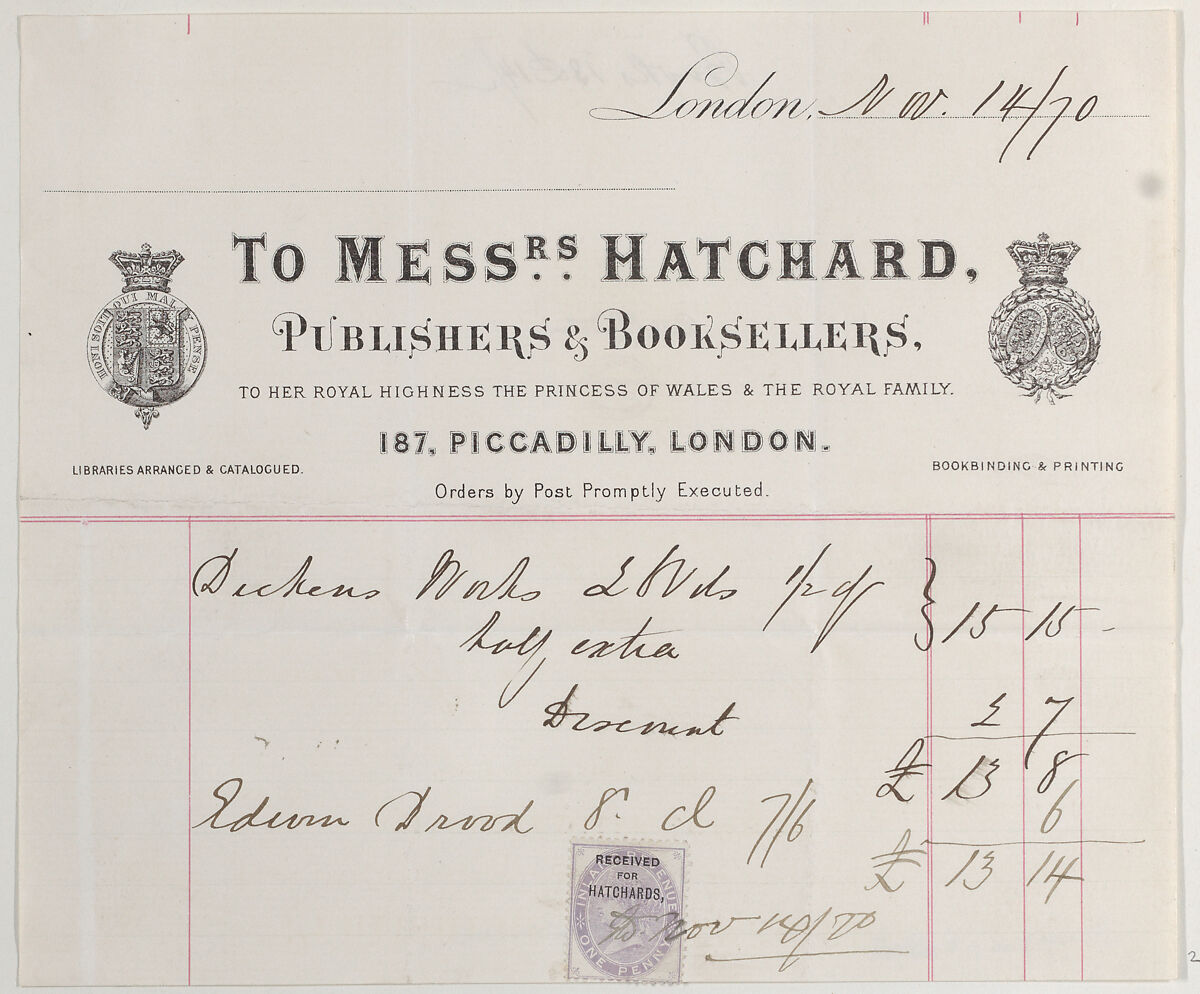 London, Nov. 14/70
TO MESSRS HATCHARD,
PUBLISHERS & BOOKSELLERS,
TO HER ROYAL HIGHNESS THE PRINCESS OF WALES & THE ROYAL FAMILY.
187, PICCADILLY, LONDON.
LIBRARIES ARRANGED & CATALOGUED.
BOOKBINDING & PRINTING
Orders by Post Promptly Executed.
HONI SOIT QUI MAL Y PENSE
Dickens Works Vols 1/2 cf
half extra } 15 15 -
Discount 2 7
£ 13 8
Edwin Drood 8. cl 7/6 6
£ 13 14
INLAND REVENUE
ONE PENNY
RECEIVED
FOR
HATCHARDS,
Nov 14/70
2